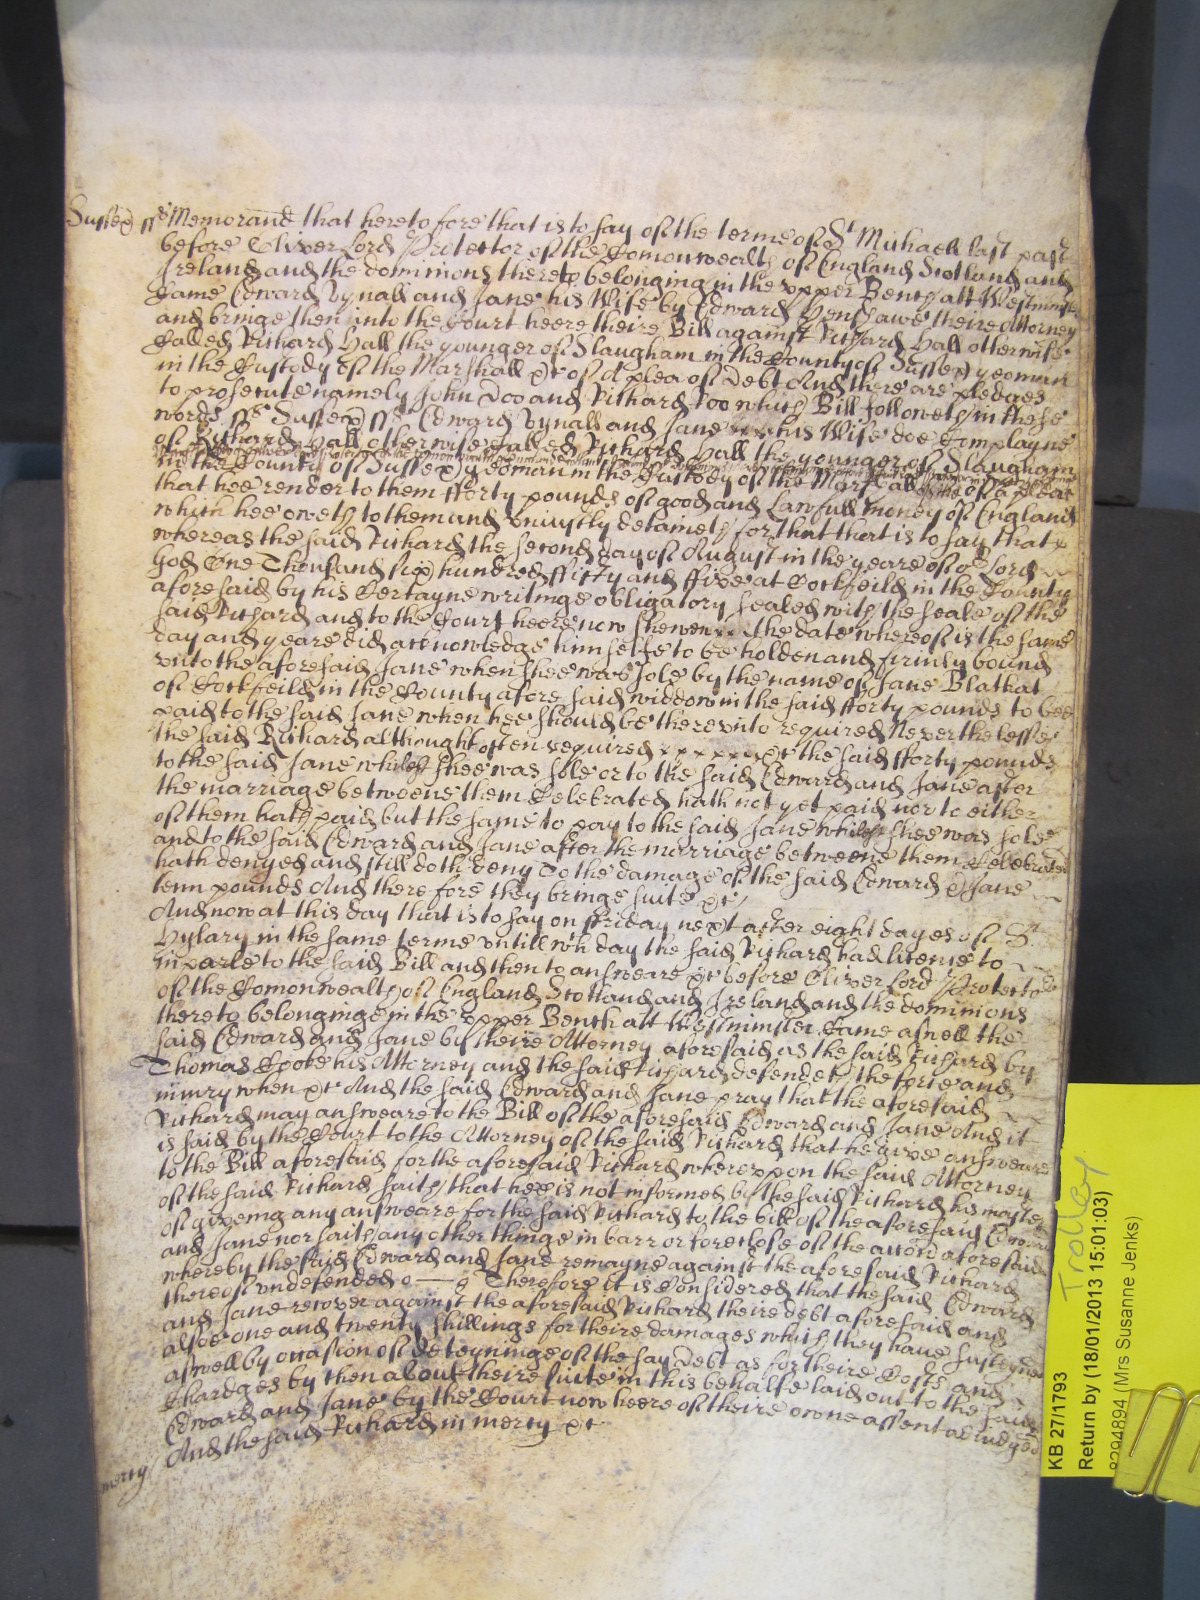 Sussex ss Memorand that heretofore that is to say of the terme of St Michaell last past
before Oliver Lord Protector of the Comonwealth of England Scotland and
Ireland and the dominions thereto belonging in the upper Bench att Westminster
Came Edward Vynall and Jane his Wife by Edward Henshawe theire Attorney
and bringe then into the Court heere theire Bill against Richard Hall otherwise
Called Richard Hall the younger of Slaugham in the County of Sussex yeoman
in the Custody of the Marshall &c of A plea of Debt And there are pledges
to prosecute namely John Doo and Richard Roo which Bill followeth in these
words ss Sussex ss Edward Vynall and Jane x x his Wife doe Complayne
of Richard Hall otherwise Called Richard Hall the younger of Slaugham
in the County of Sussex yeoman in the Custody of the Marshall &c of a plea
that hee render to them fforty pounds of good and Lawfull money of England
which hee oweth to them and uniustly detaineth for that that is to say that
whereas the said Richard the second day of August in the yeare of or Lord
God One Thousand six hundred ffifty and ffive at Cockfeild in the County
aforesaid by his Certayne writinge obligatory sealed with the seale of the
said Richard and to the Court heere now shewen x x the date whereof is the same
day and yeare did acknowledge himselfe to be holden and firmly bound
unto the aforesaid Jane when shee was sole by the name of Jane Blathat
of Cockfeild in the County aforesaid widdow in the said fforty pounds to bee
paid to the said Jane when hee should be thereunto required Neverthelesse
the said Richard althought often required x x x x x x &c the said fforty pounds
to the said Jane whilest shee was sole or to the said Edward and Jane after
the marriage betweene them Celebrated hath not yet paid nor to either
of them hath paid but the same to pay to the said Jane whilest shee was sole
and to the said Edward and Jane after the marriage betweene them Celebrated
hath denyed and still doth deny To the damage of the said Edward & Jane
tenn pounds And therefore they bringe suite &c
And now at this day that is to say on ffriday next after eight dayes of St
Hylary in the same terme untill wch day the said Richard had licence to
imparle to the said Bill and then to answeare &c before Oliver Lord Protector
of the Comonwealth of England Scotland and Ireland and the dominions
thereto belonginge in the upper Bench att Westminster Came aswell the
said Edward and Jane by theire Attorney aforesaid as the said Richard by
Thomas Coote his Attorney and the said Richard defendeth the force and
iniury when &c And the said Edward and Jane pray that the aforesaid
Richard may answeare to the Bill of the aforesaid Edward and Jane And it
is said by the Court to the Attorney of the said Richard that he give answeare
to the Bill aforesaid for the aforesaid Richard whereuppon the said Attorney
of the said Richard saith that hee is not informed by the said Richard his master
of giveing any answeare for the said Richard to the bill of the aforesaid Edward
and Jane nor saith any other thinge in barr or foreclose of the accon aforesaid
whereby the said Edward and Jane remayne against the aforesaid Richard
thereof undefended Therefore it is Considered that the said Edward
and Jane recover against the aforesaid Richard theire debt aforesaid and
alsoe one and twenty shillings for theire damages which they have susteyned
aswell by occasion of deteyninge of the say Debt as for theire Costs and
Chardges by then about theire suite in this behalfe laid out to the said
Edward and Jane by the Court now heere of theire owne assent adiudged
And the said Richard in mercy &c
mercy
Trolley
KB 27/1793
Return by (18/01/2013 15:01:03)
8294894 (Mrs Susanne Jenks)